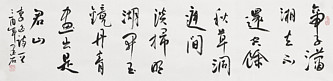 帝子瀟
湘去不
還空餘
秋草洞
庭間
淡掃明
湖開玉
鏡丹青
畫出是
君山